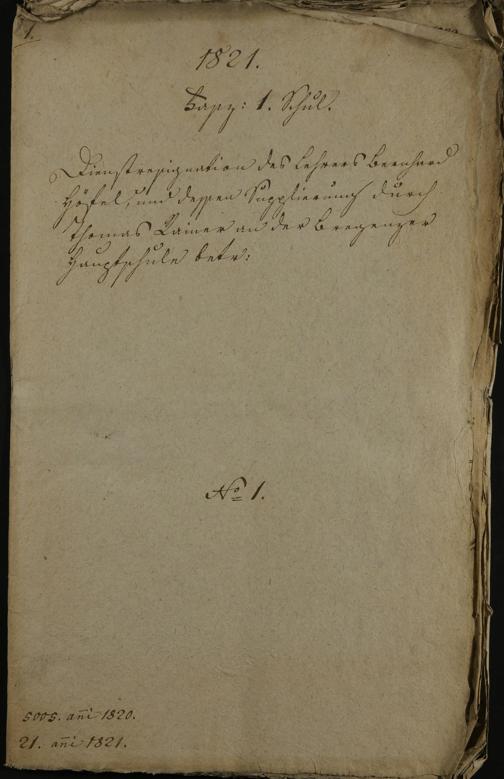 1.
1821.
Fasz: 1. Schul.
Dienstresignation des Lehrers Bernhard
Höfel, und dessen Supplierung durch
Thomas Rainer an der Bregenzer
Hauptschule betr:
No 1.
5005. ani 1820.
21. ani 1821.